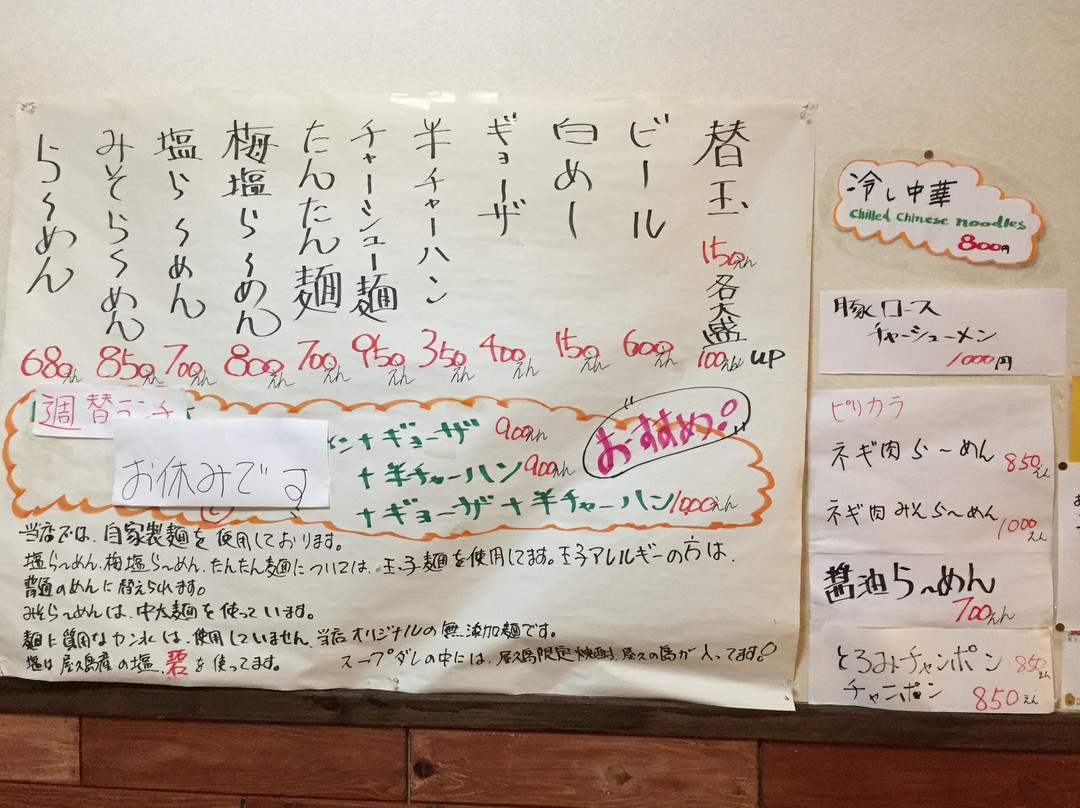 替玉 150えん 各大盛 100えん UP
ビール 600えん
白めー 150えん
ギョーザ 400えん
半チャーハン 350えん
チャーシュー麺 950えん
たんたん麺 700えん
梅塩ら〜めん 800えん
塩ら〜めん 700えん
みそら〜めん 850えん
ら〜めん 680えん
週替ランチ
お休みです
おすすめ!
ン+ギョーザ 900えん
+半チャーハン 900えん
+ギョーザ+半チャーハン 1000えん
当店では、自家製麺を使用しております。
塩ら〜めん、梅塩ら〜めん、たんたん麺については、玉子麺を使用してます。玉子アレルギーの方は、
普通のめんに替えられます。
みそら〜めんは、中太麺を使っています。
使用していません、当店オリジナルの無添加麺です。
塩は屋久島産の塩、碧を使ってます。
スープダレの中には、屋久島限定焼酎、屋久の島が入ってます!
冷し中華
Chilled Chinese noodles
800円
豚ロース
チャーシューメン
1000円
ピリカラ
ネギ肉ら〜めん 850えん
ネギ肉みそら〜めん 1000えん
醤油ら〜めん
700えん
とろみチャンポン 850えん
チャンポン 850えん